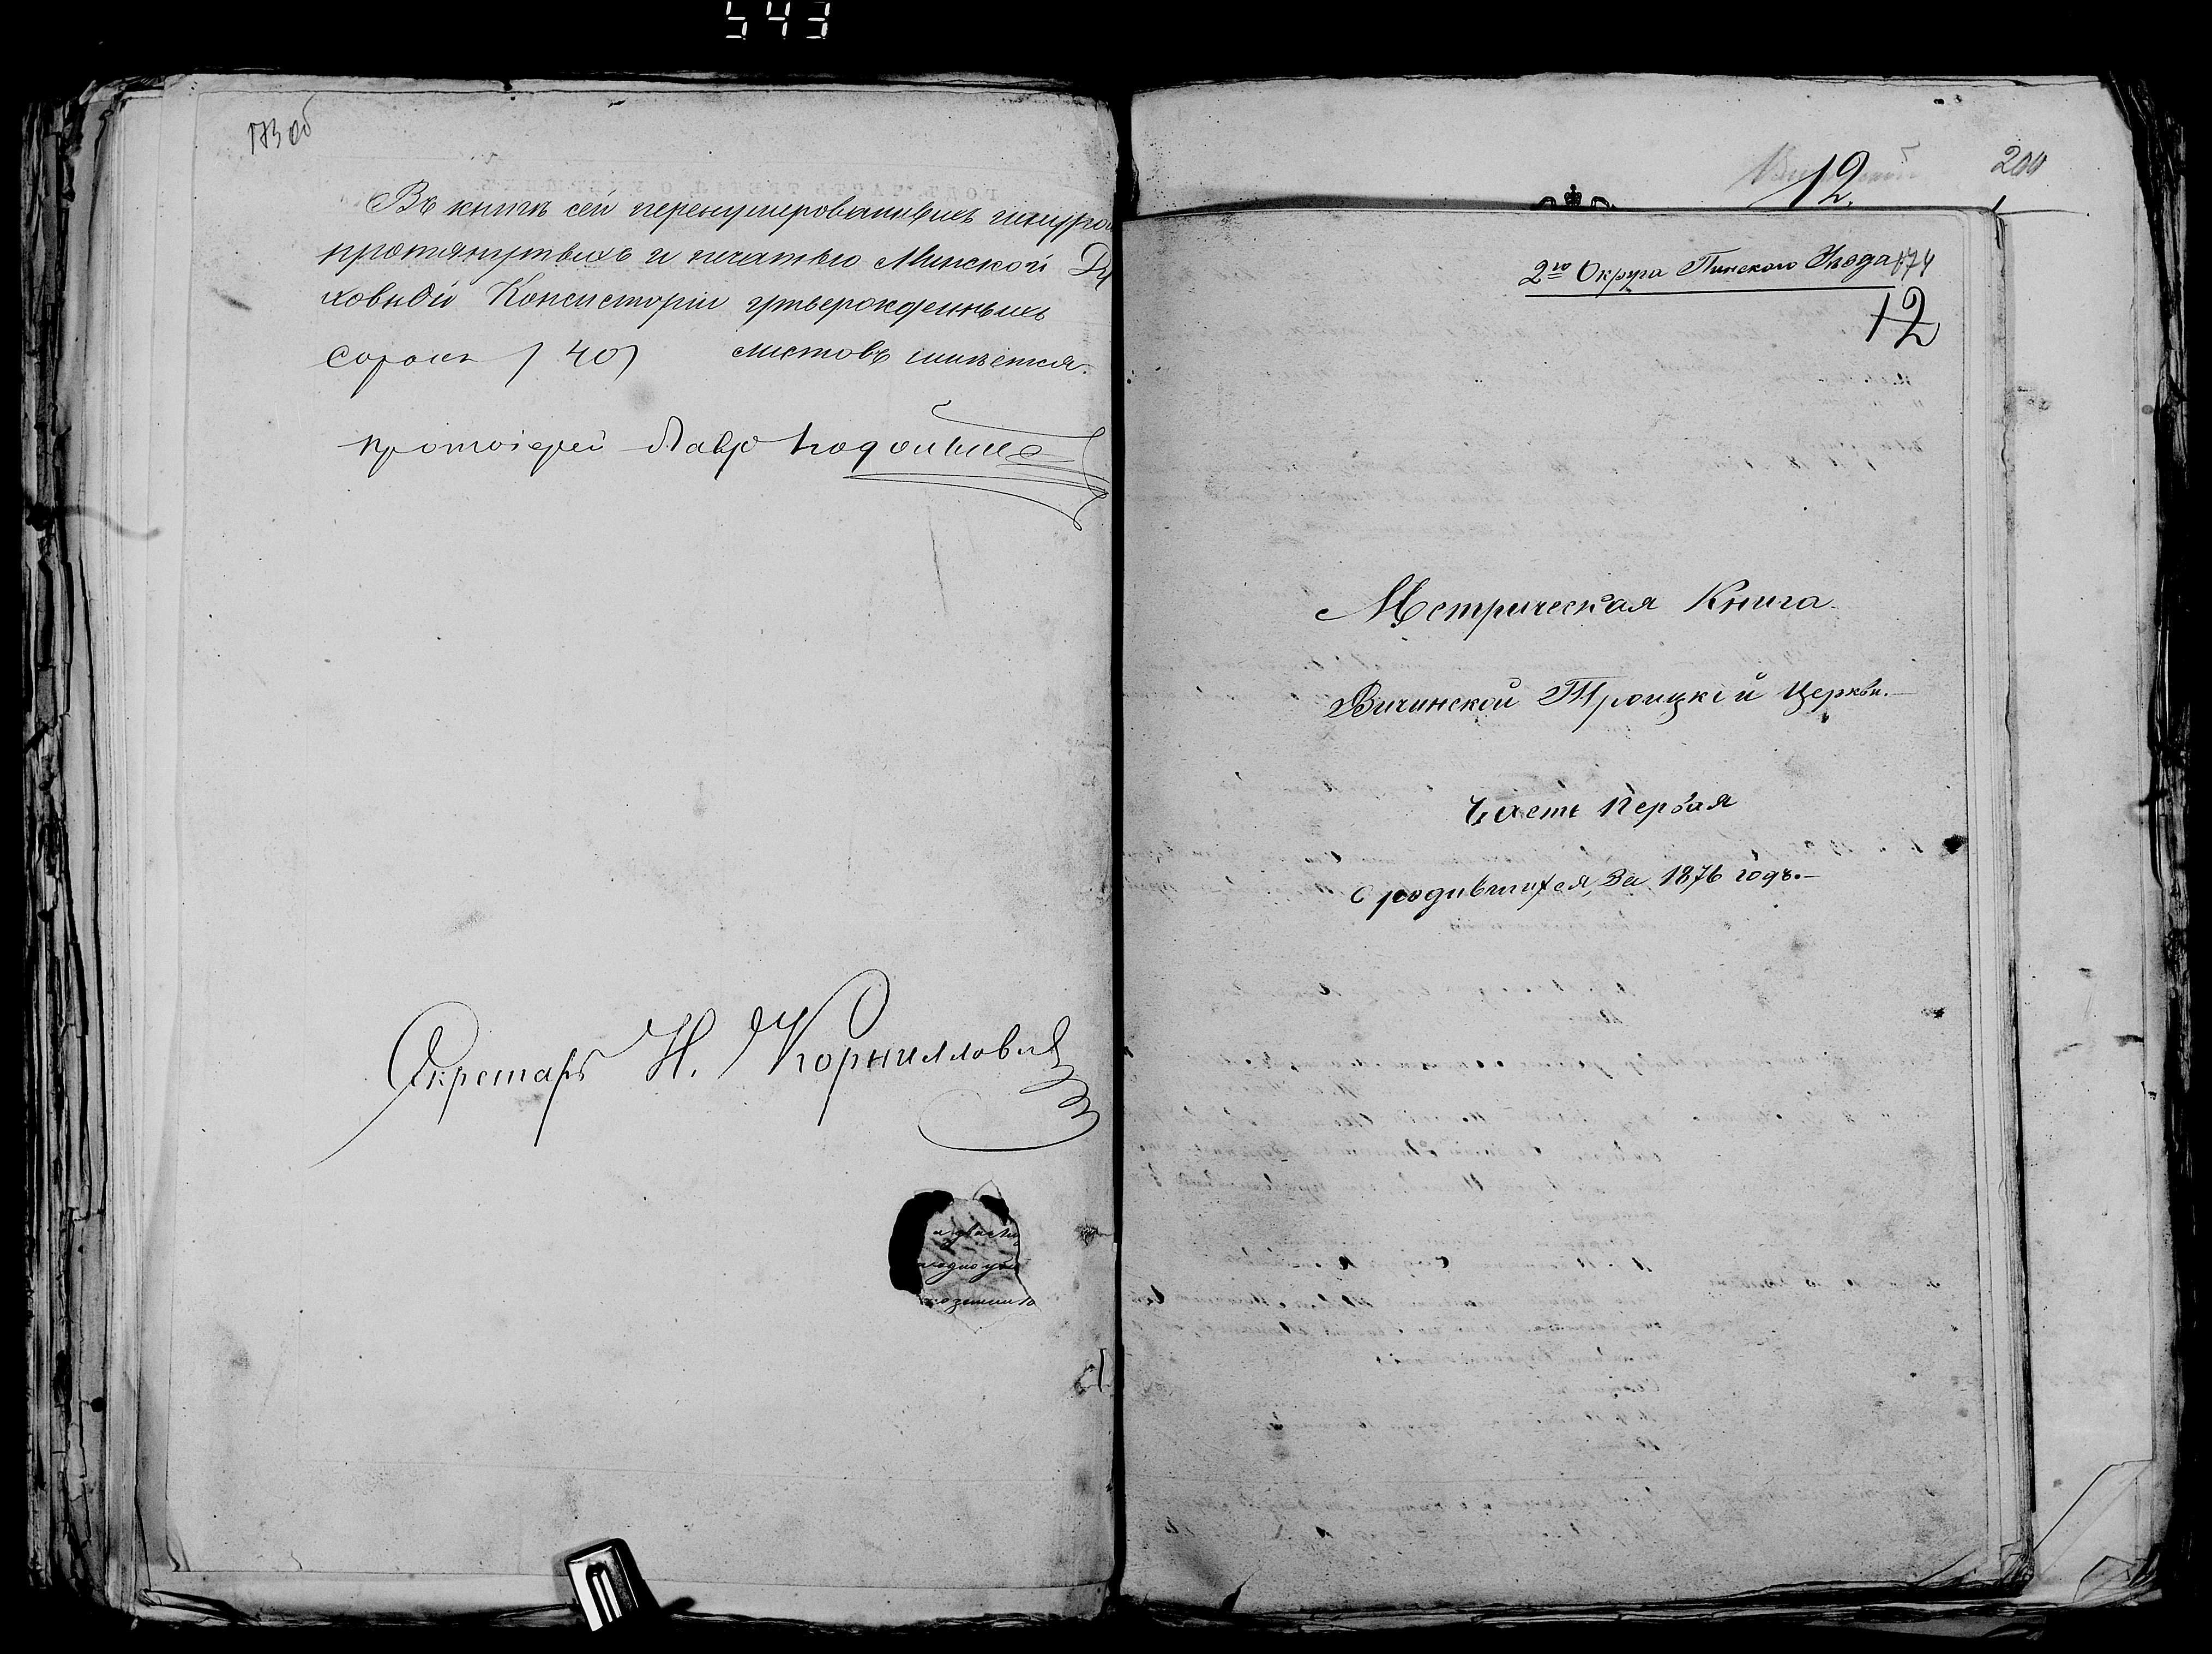 543
173 об
Въ книгѣ сей перенумерованныхъ шнуро
протянутыхъ и печатью Минской Ду
ховной Консисторіи утвержденныхъ
сорокъ (40) листовъ имѣется.
протоіерей Лавръ
Секретарь Н. Корнилловичъ
200
12.
2го Округа Пинскаго Уѣзда 174
12
Метрическая Книга
Вичинской Троицкой Церкви.
Часть Первая
о родившихся, За 1876 годъ.